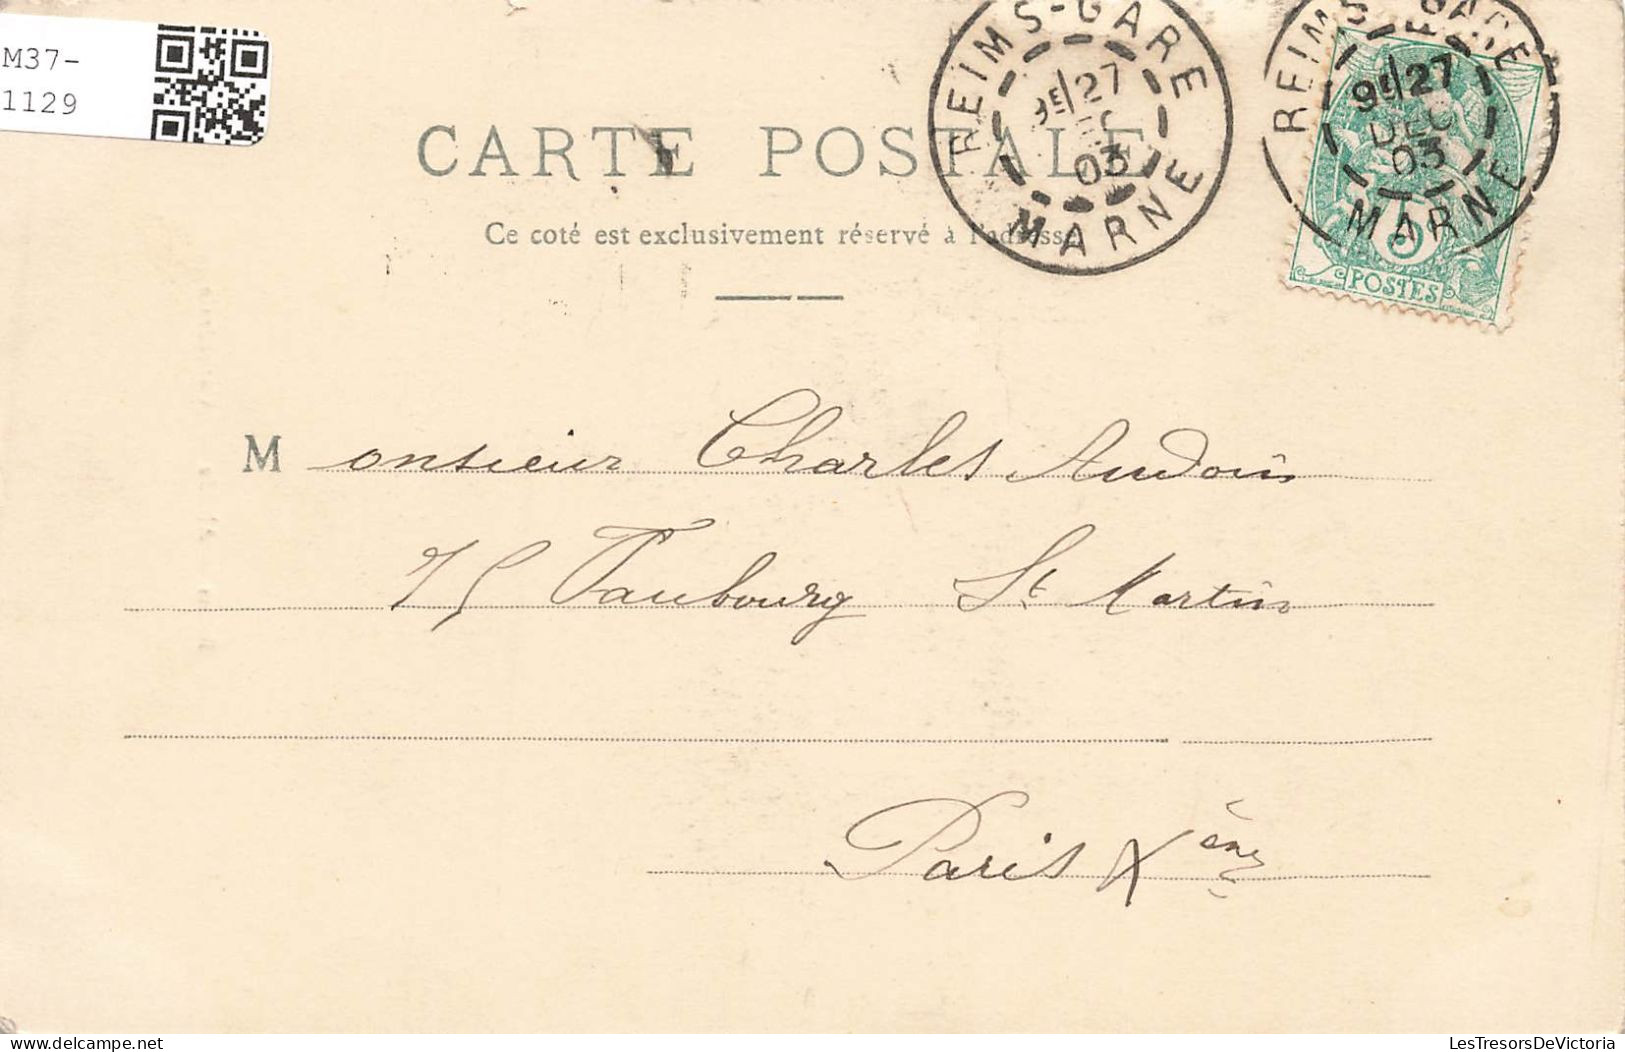 M37-
1129
REIMS-GARE
9E/27
03
MARNE
REIMS-GARE
9E/27
DEC
03
MARNE
5
POSTES
CARTE POSTALE
Ce coté est exclusivement réservé à l'adresse
Monsieur Charles Audoin
75 Faubourg St Martin
Paris Xème
www.delcampe.net
LesTresorsDeVictoria